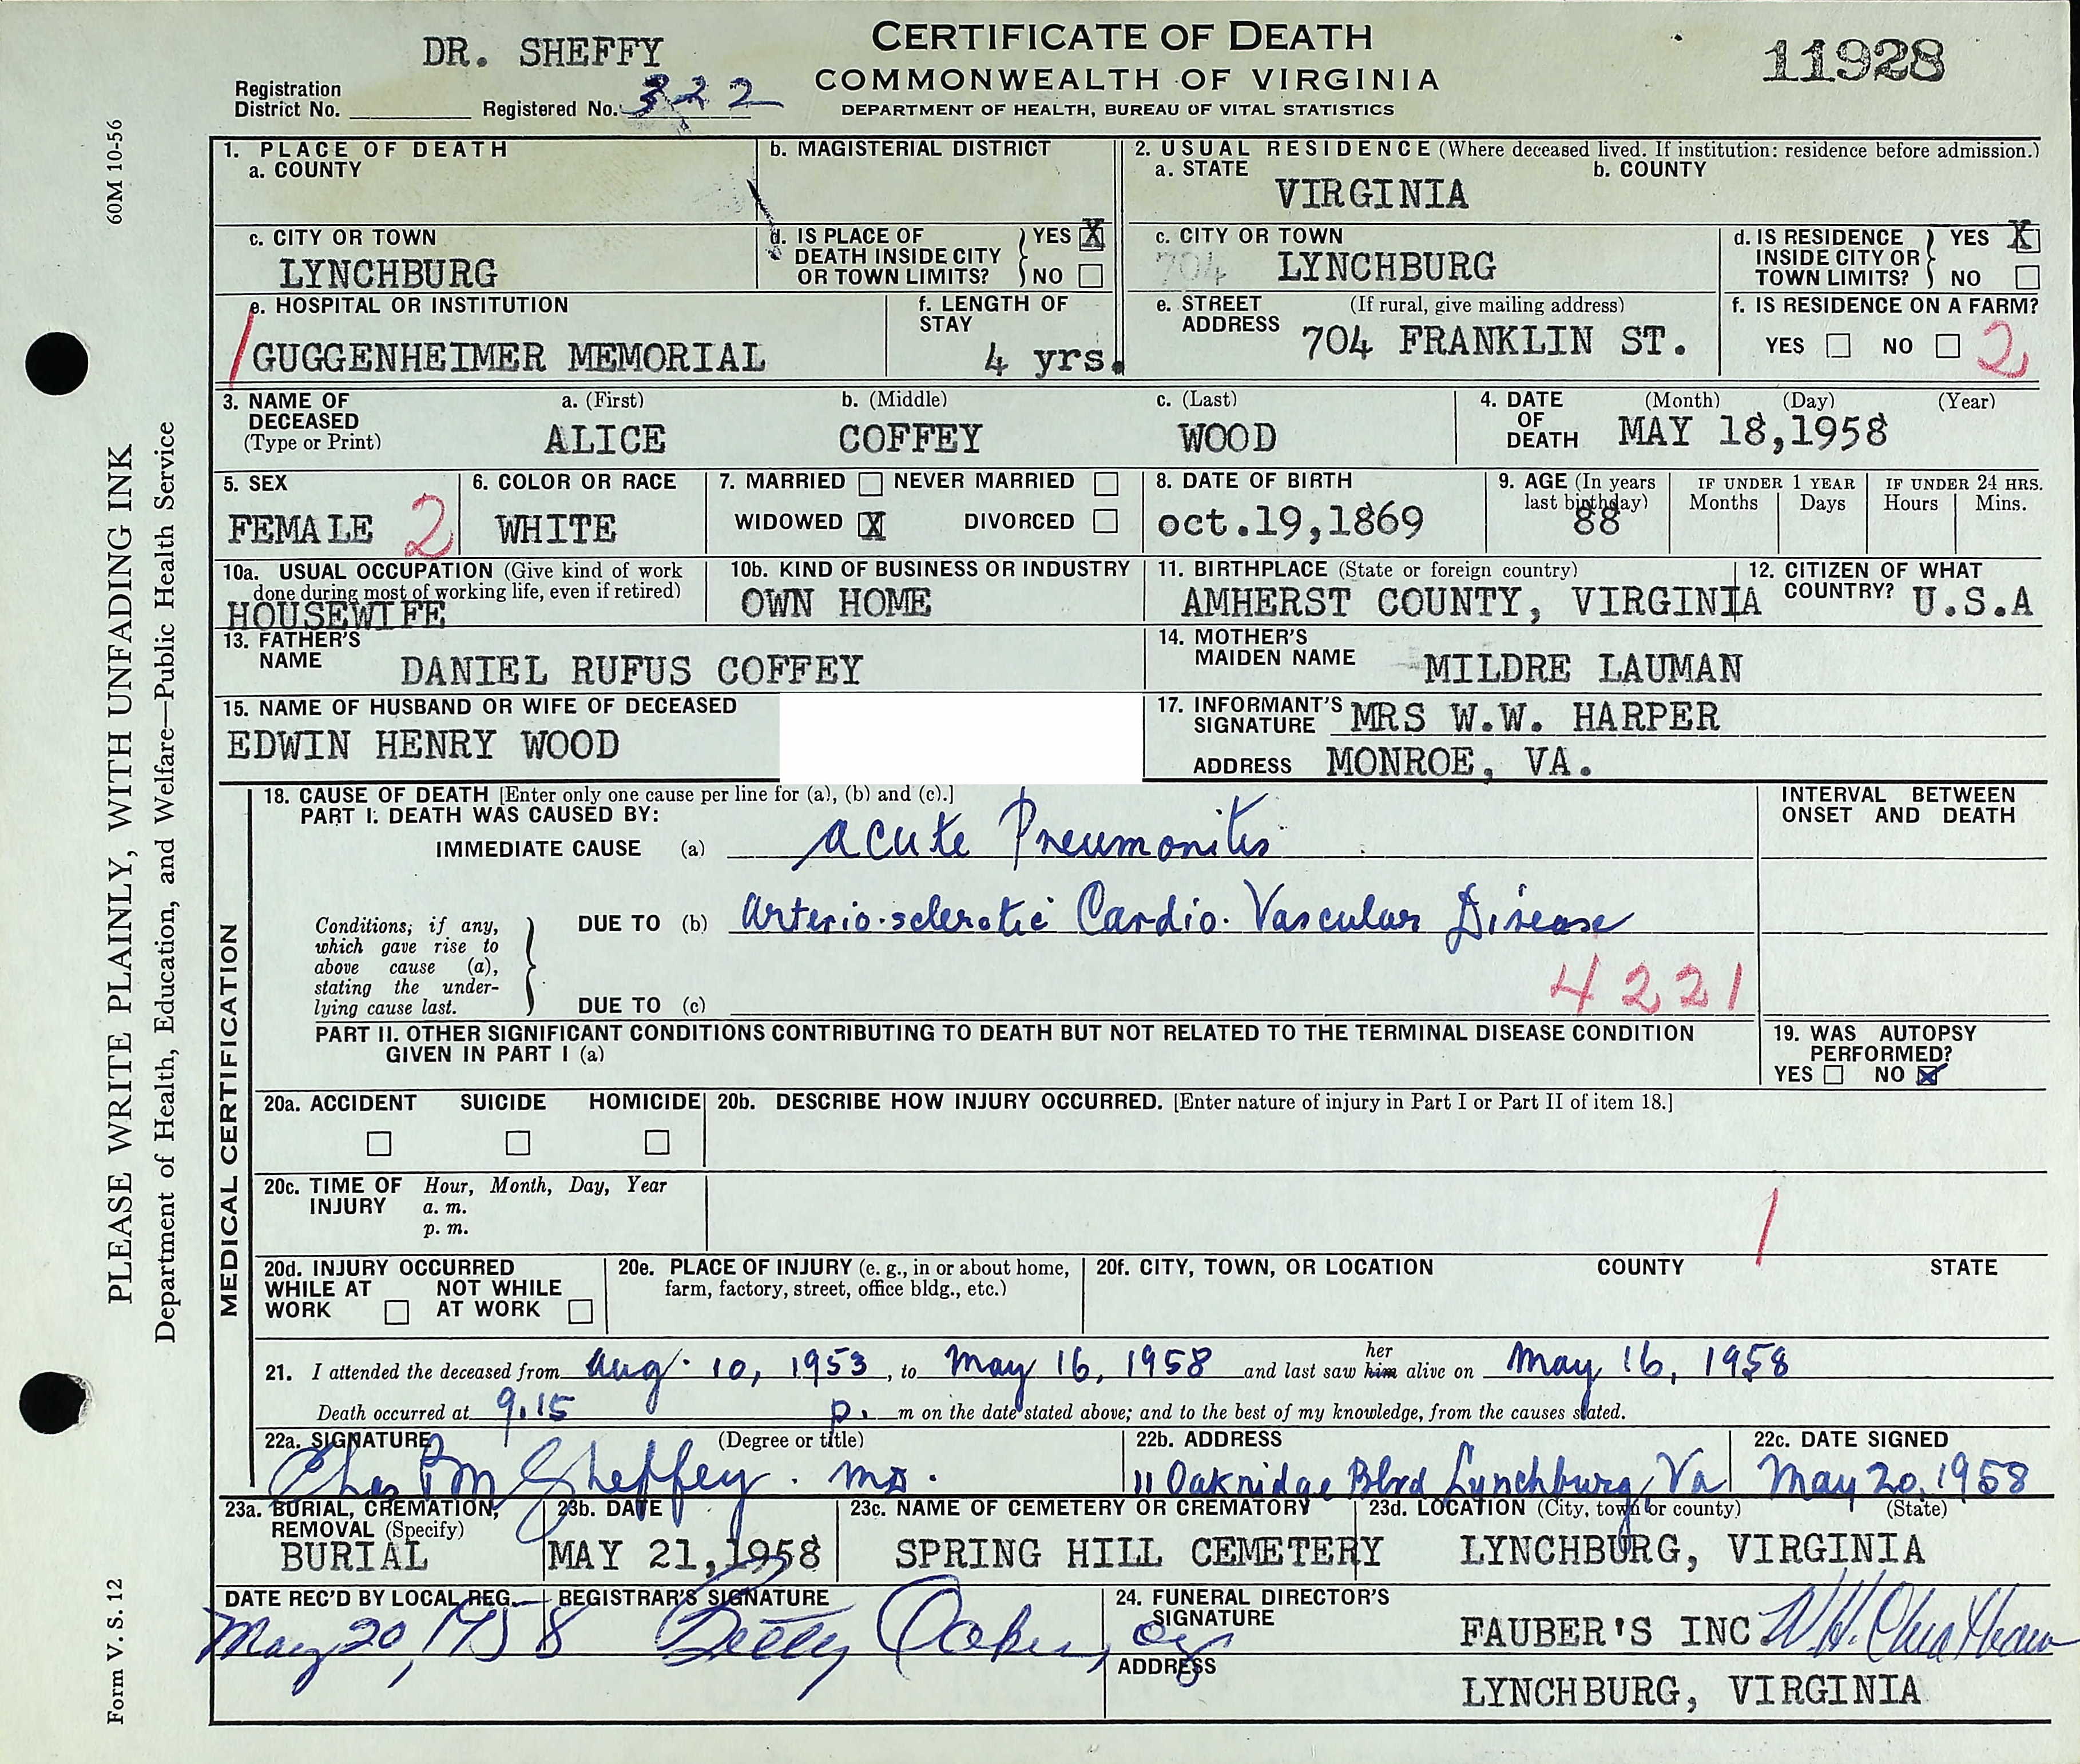 DR. SHEFFY
CERTIFICATE OF DEATH
11928
COMMONWEALTH OF VIRGINIA
DEPARTMENT OF HEALTH, BUREAU OF VITAL STATISTICS
Registration District No. Registered No. 322
60M 10-56
PLEASE WRITE PLAINLY, WITH UNFADING INK
Department of Health, Education, and Welfare—Public Health Service
Form V. S. 12
1. PLACE OF DEATH
a. COUNTY
b. MAGISTERIAL DISTRICT
2. USUAL RESIDENCE (Where deceased lived. If institution: residence before admission.)
a. STATE VIRGINIA
b. COUNTY
c. CITY OR TOWN
LYNCHBURG
d. IS PLACE OF DEATH INSIDE CITY OR TOWN LIMITS? YES X NO
c. CITY OR TOWN
704 LYNCHBURG
d. IS RESIDENCE INSIDE CITY OR TOWN LIMITS? YES X NO
e. HOSPITAL OR INSTITUTION
1 GUGGENHEIMER MEMORIAL
f. LENGTH OF STAY
4 yrs.
e. STREET ADDRESS (If rural, give mailing address)
704 FRANKLIN ST.
f. IS RESIDENCE ON A FARM?
YES NO 2
3. NAME OF DECEASED (Type or Print)
a. (First) b. (Middle) c. (Last)
ALICE COFFEY WOOD
4. DATE OF DEATH (Month) (Day) (Year)
MAY 18,1958
5. SEX
FEMALE 2
6. COLOR OR RACE
WHITE
7. MARRIED NEVER MARRIED
WIDOWED X DIVORCED
8. DATE OF BIRTH
oct.19,1869
9. AGE (In years last birthday)
88
IF UNDER 1 YEAR
Months Days
IF UNDER 24 HRS.
Hours Mins.
10a. USUAL OCCUPATION (Give kind of work done during most of working life, even if retired)
HOUSEWIFE
10b. KIND OF BUSINESS OR INDUSTRY
OWN HOME
11. BIRTHPLACE (State or foreign country)
AMHERST COUNTY, VIRGINIA
12. CITIZEN OF WHAT COUNTRY? U.S.A
13. FATHER'S NAME
DANIEL RUFUS COFFEY
14. MOTHER'S MAIDEN NAME
MILDRE LAUMAN
15. NAME OF HUSBAND OR WIFE OF DECEASED
EDWIN HENRY WOOD
17. INFORMANT'S SIGNATURE MRS W.W. HARPER
ADDRESS MONROE, VA.
MEDICAL CERTIFICATION
18. CAUSE OF DEATH [Enter only one cause per line for (a), (b) and (c).]
PART I. DEATH WAS CAUSED BY:
INTERVAL BETWEEN ONSET AND DEATH
IMMEDIATE CAUSE (a) Acute Pneumonitis
Conditions, if any, which gave rise to above cause (a), stating the underlying cause last.
DUE TO (b) Arterio-sclerotic Cardio-Vascular Disease
4221
DUE TO (c)
PART II. OTHER SIGNIFICANT CONDITIONS CONTRIBUTING TO DEATH BUT NOT RELATED TO THE TERMINAL DISEASE CONDITION GIVEN IN PART I (a)
19. WAS AUTOPSY PERFORMED?
YES NO X
20a. ACCIDENT SUICIDE HOMICIDE
20b. DESCRIBE HOW INJURY OCCURRED. [Enter nature of injury in Part I or Part II of item 18.]
20c. TIME OF INJURY Hour, Month, Day, Year
a. m.
p. m.
1
20d. INJURY OCCURRED
WHILE AT WORK NOT WHILE AT WORK
20e. PLACE OF INJURY (e. g., in or about home, farm, factory, street, office bldg., etc.)
20f. CITY, TOWN, OR LOCATION COUNTY STATE
21. I attended the deceased from Aug. 10, 1953, to May 16, 1958 and last saw her him alive on May 16, 1958
Death occurred at 9.15 p. m on the date stated above; and to the best of my knowledge, from the causes stated.
22a. SIGNATURE (Degree or title)
Chas PM Sheffey. MD.
22b. ADDRESS
11 Oakridge Blvd Lynchburg, Va
22c. DATE SIGNED
May 20, 1958
23a. BURIAL, CREMATION, REMOVAL (Specify)
BURIAL
23b. DATE
MAY 21,1958
23c. NAME OF CEMETERY OR CREMATORY
SPRING HILL CEMETERY
23d. LOCATION (City, town or county) (State)
LYNCHBURG, VIRGINIA
DATE REC'D BY LOCAL REG.
May 20, 1958
REGISTRAR'S SIGNATURE
Betty
24. FUNERAL DIRECTOR'S SIGNATURE
FAUBER'S INC.
ADDRESS
LYNCHBURG, VIRGINIA